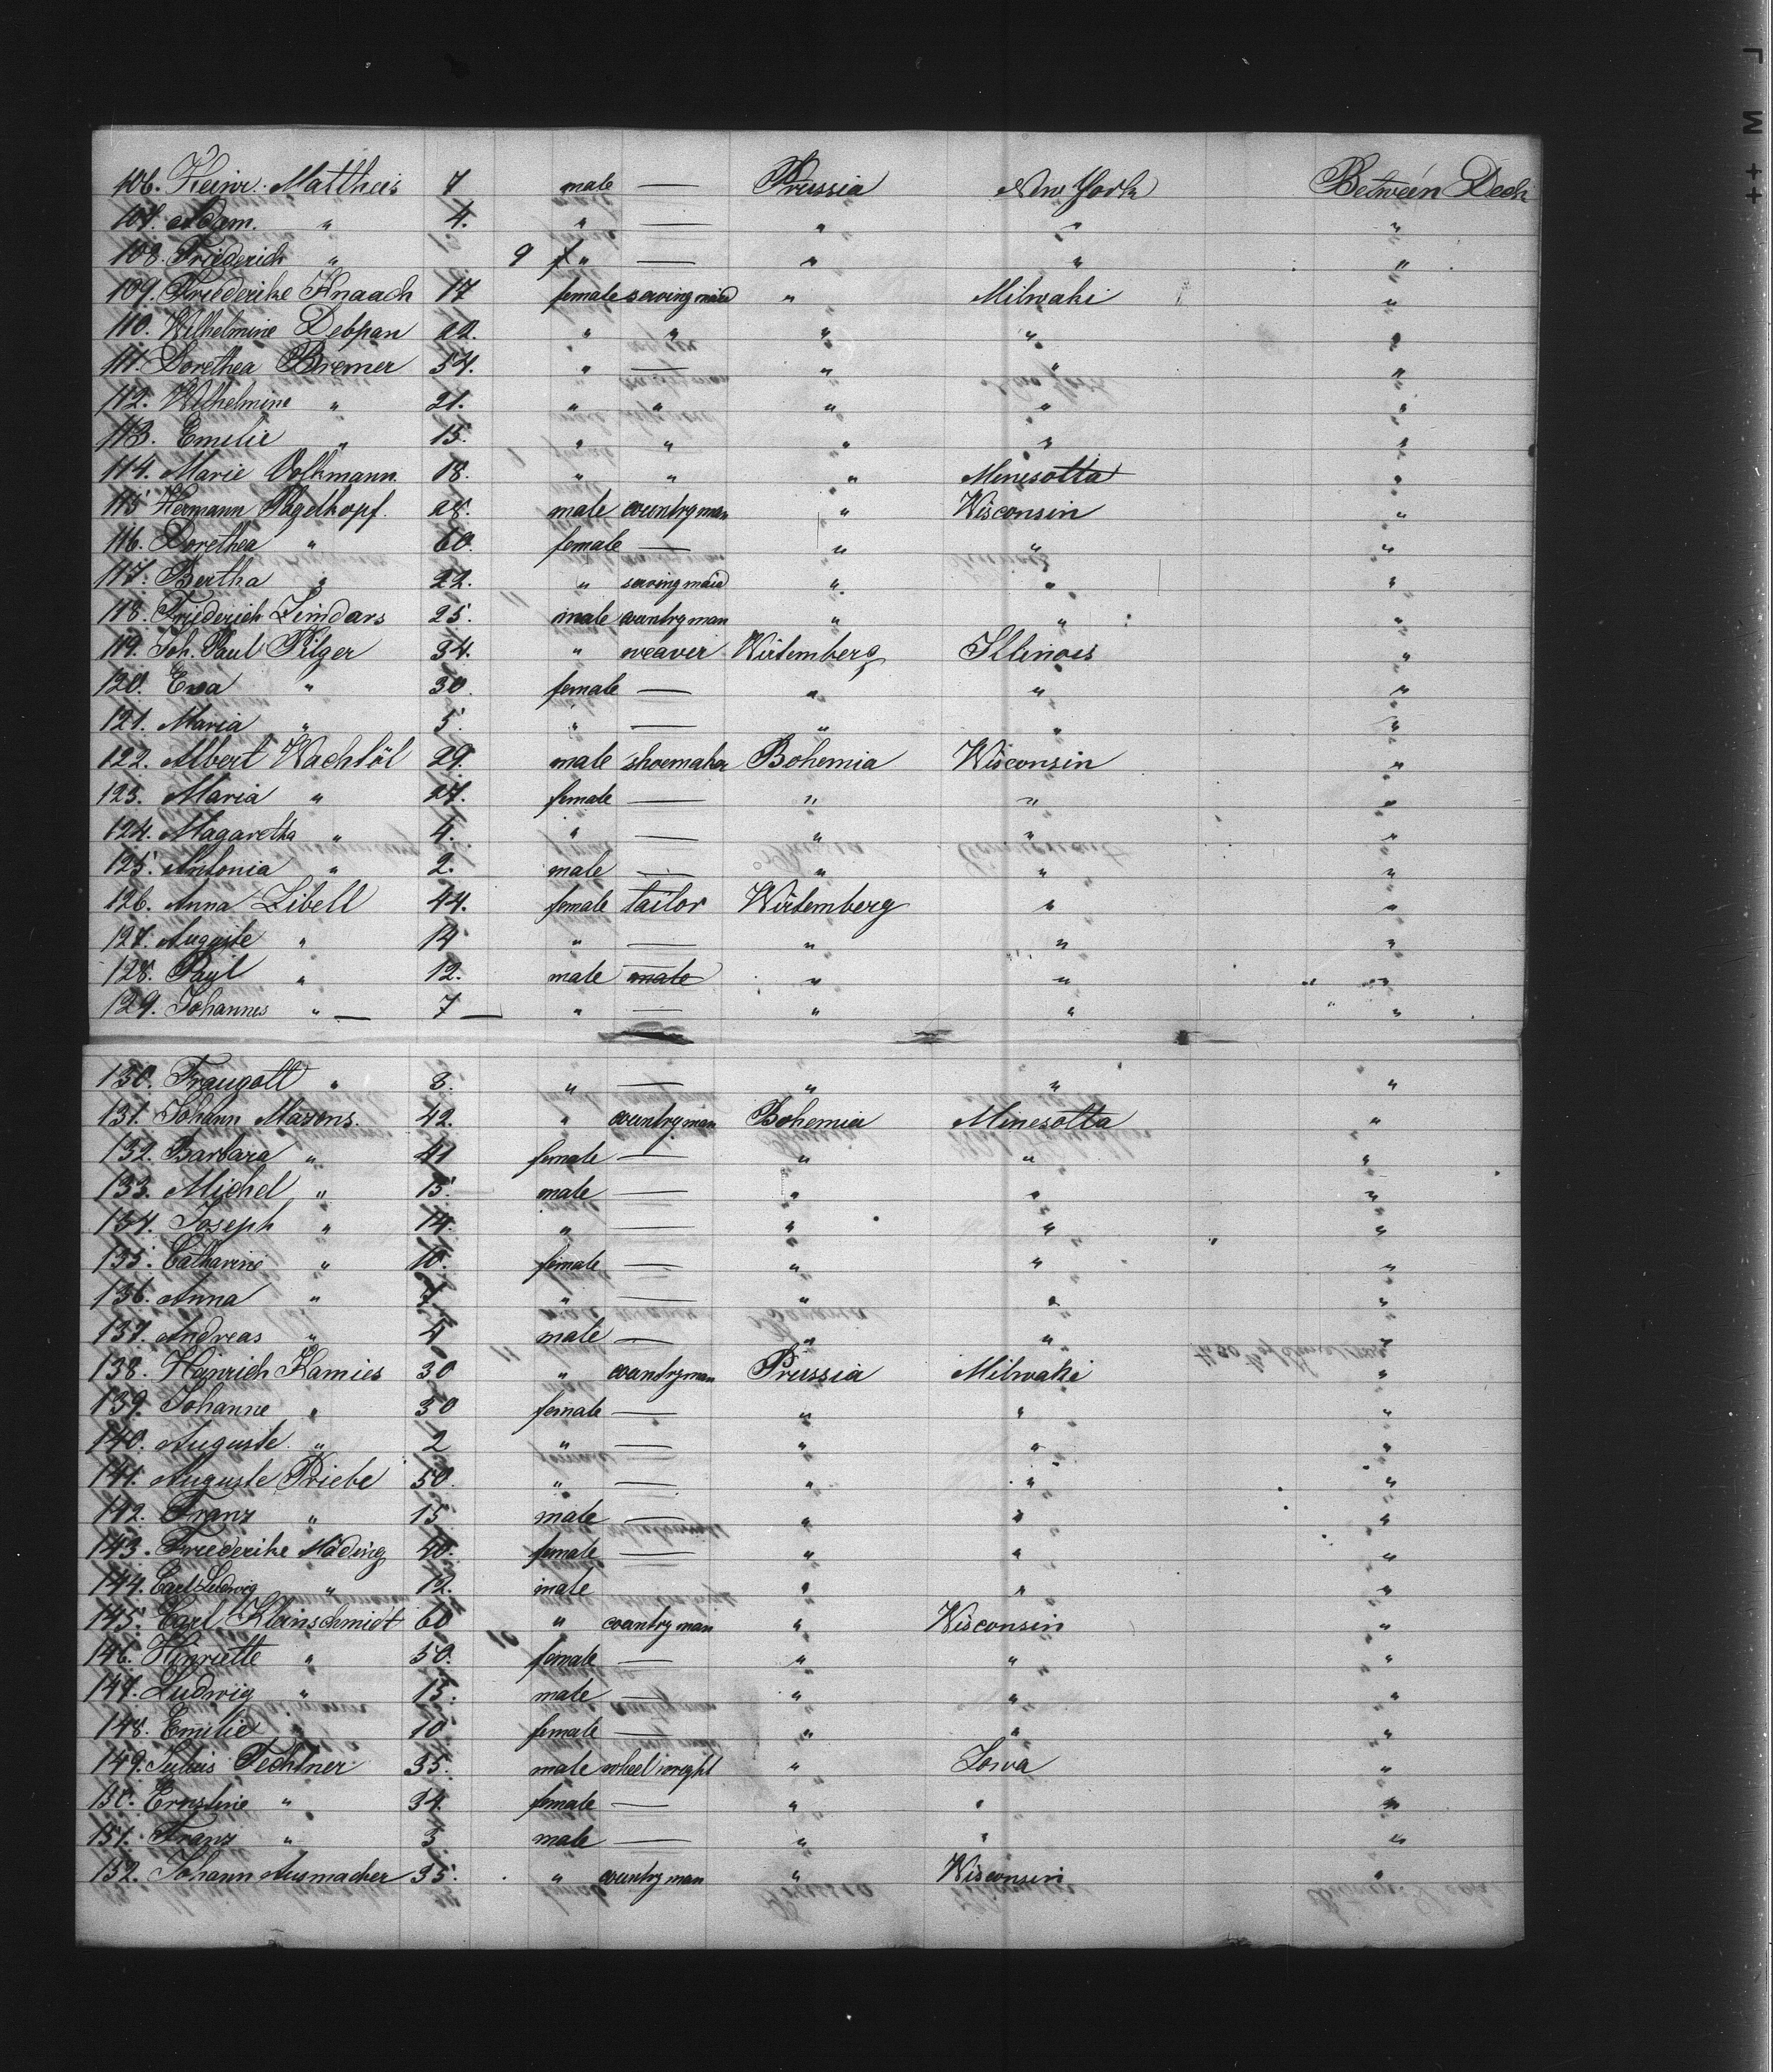 106. Heinr. Mattheis 7 male — Prussia New York Between Deck
107. Adam. " 4. " — " " "
108. Friederich " 9 " — " " "
109. Friederike Knaach 17 female servingmaid " Milwaki "
110. Wilhelmine Debpan 22. " " " " "
111. Dorethea Bremer 54. " — " " "
112. Wilhelmine " 21. " " " " "
113. Emilie " 15. " " " " "
114. Marie Volkmann 18. " " " Minesotta "
115 Hermann Plagelkopf. 28. male countryman " Wisconsin "
116. Dorethea " 60. female — " " "
117. Bertha " 22. " servingmaid " " "
118. Friederich Lemdars 25. male countryman " " "
119. Joh. Paul Pilger 34. " weaver Wirtemberg Illinois "
120. Eva " 30. female — " " "
121. Maria " 5. " — " " "
122. Albert Wachtöl 29. male shoemaker Bohemia Wisconsin "
123. Maria " 27. female — " " "
124. Magaretha " 4. " — " " "
125. Antonia " 2. male — " " "
126. Anna Zibell 44. female tailor Wirtemberg " "
127. Auguste " 14 " — " " "
128. Paul " 12. male male " " "
129. Johannes " — 7 — " — " " "
130. Traugott " 3. " — " " "
131. Johann Masons. 42. " countryman Bohemia Minesotta "
132. Barbara " 41 female — " " "
133. Michel " 15. male — " " "
134. Joseph " 14. " — " " "
135. Catharine " 10. female — " " "
136. Anna " 7 " — " " "
137. Andreas " 4 male — " " "
138. Heinrich Kamies 30 " countryman Prussia Milwaki "
139. Johanne " 30 female — " " "
140. Auguste. " 2 " — " " "
141. Auguste Priebe 50. " — " " "
142. Franz " 15 male — " " "
143. Friederike Mäding 40. female — " " "
144. Carl Ludwig " 12. male " " "
145. Carl Kleinschmidt 60 " countryman " Wisconsin "
146. Henriette " 50. female — " " "
147. Ludwig " 15. male — " " "
148. Emilie " 10. female — " " "
149. Julius Techtner 35. male wheelwright " Iowa "
150. Ernstine " 34. female — " " "
151. Franz " 3 male — " " "
152. Johann Ausmacher 35. " countryman " Wisconsin "